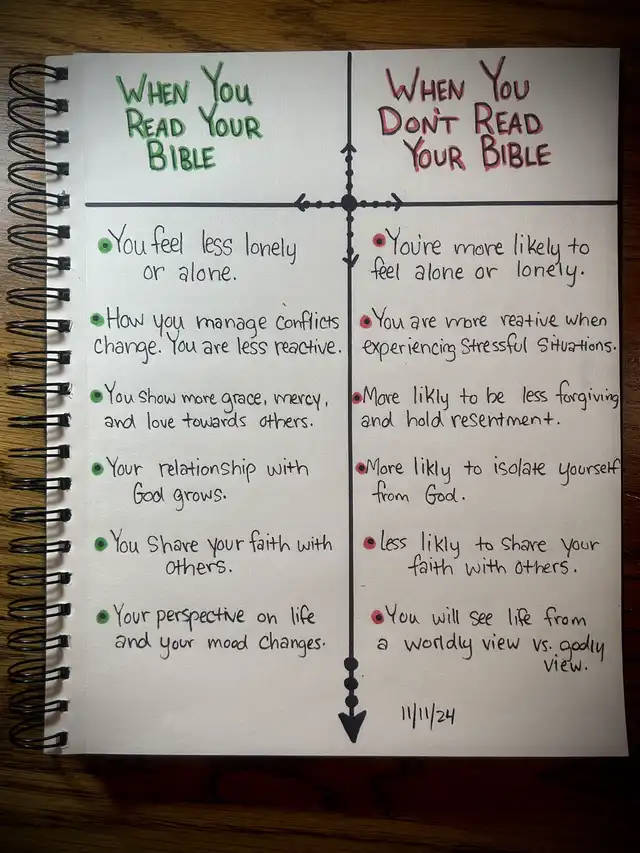 WHEN YOU
READ YOUR
BIBLE
• You feel less lonely
or alone.
• How you manage conflicts
change. You are less reactive.
• You show more grace, mercy,
and love towards others.
• Your relationship with
God grows.
• You share your faith with
others.
• Your perspective on life
and your mood changes.
WHEN YOU
DON'T READ
YOUR BIBLE
• You're more likely to
feel alone or lonely.
• You are more reative when
experiencing stressful situations.
• More likly to be less forgiving
and hold resentment.
• More likly to isolate yourself
from God.
• less likly to share your
faith with others.
• You will see life from
a worldly view vs. godly
view.
11/11/24